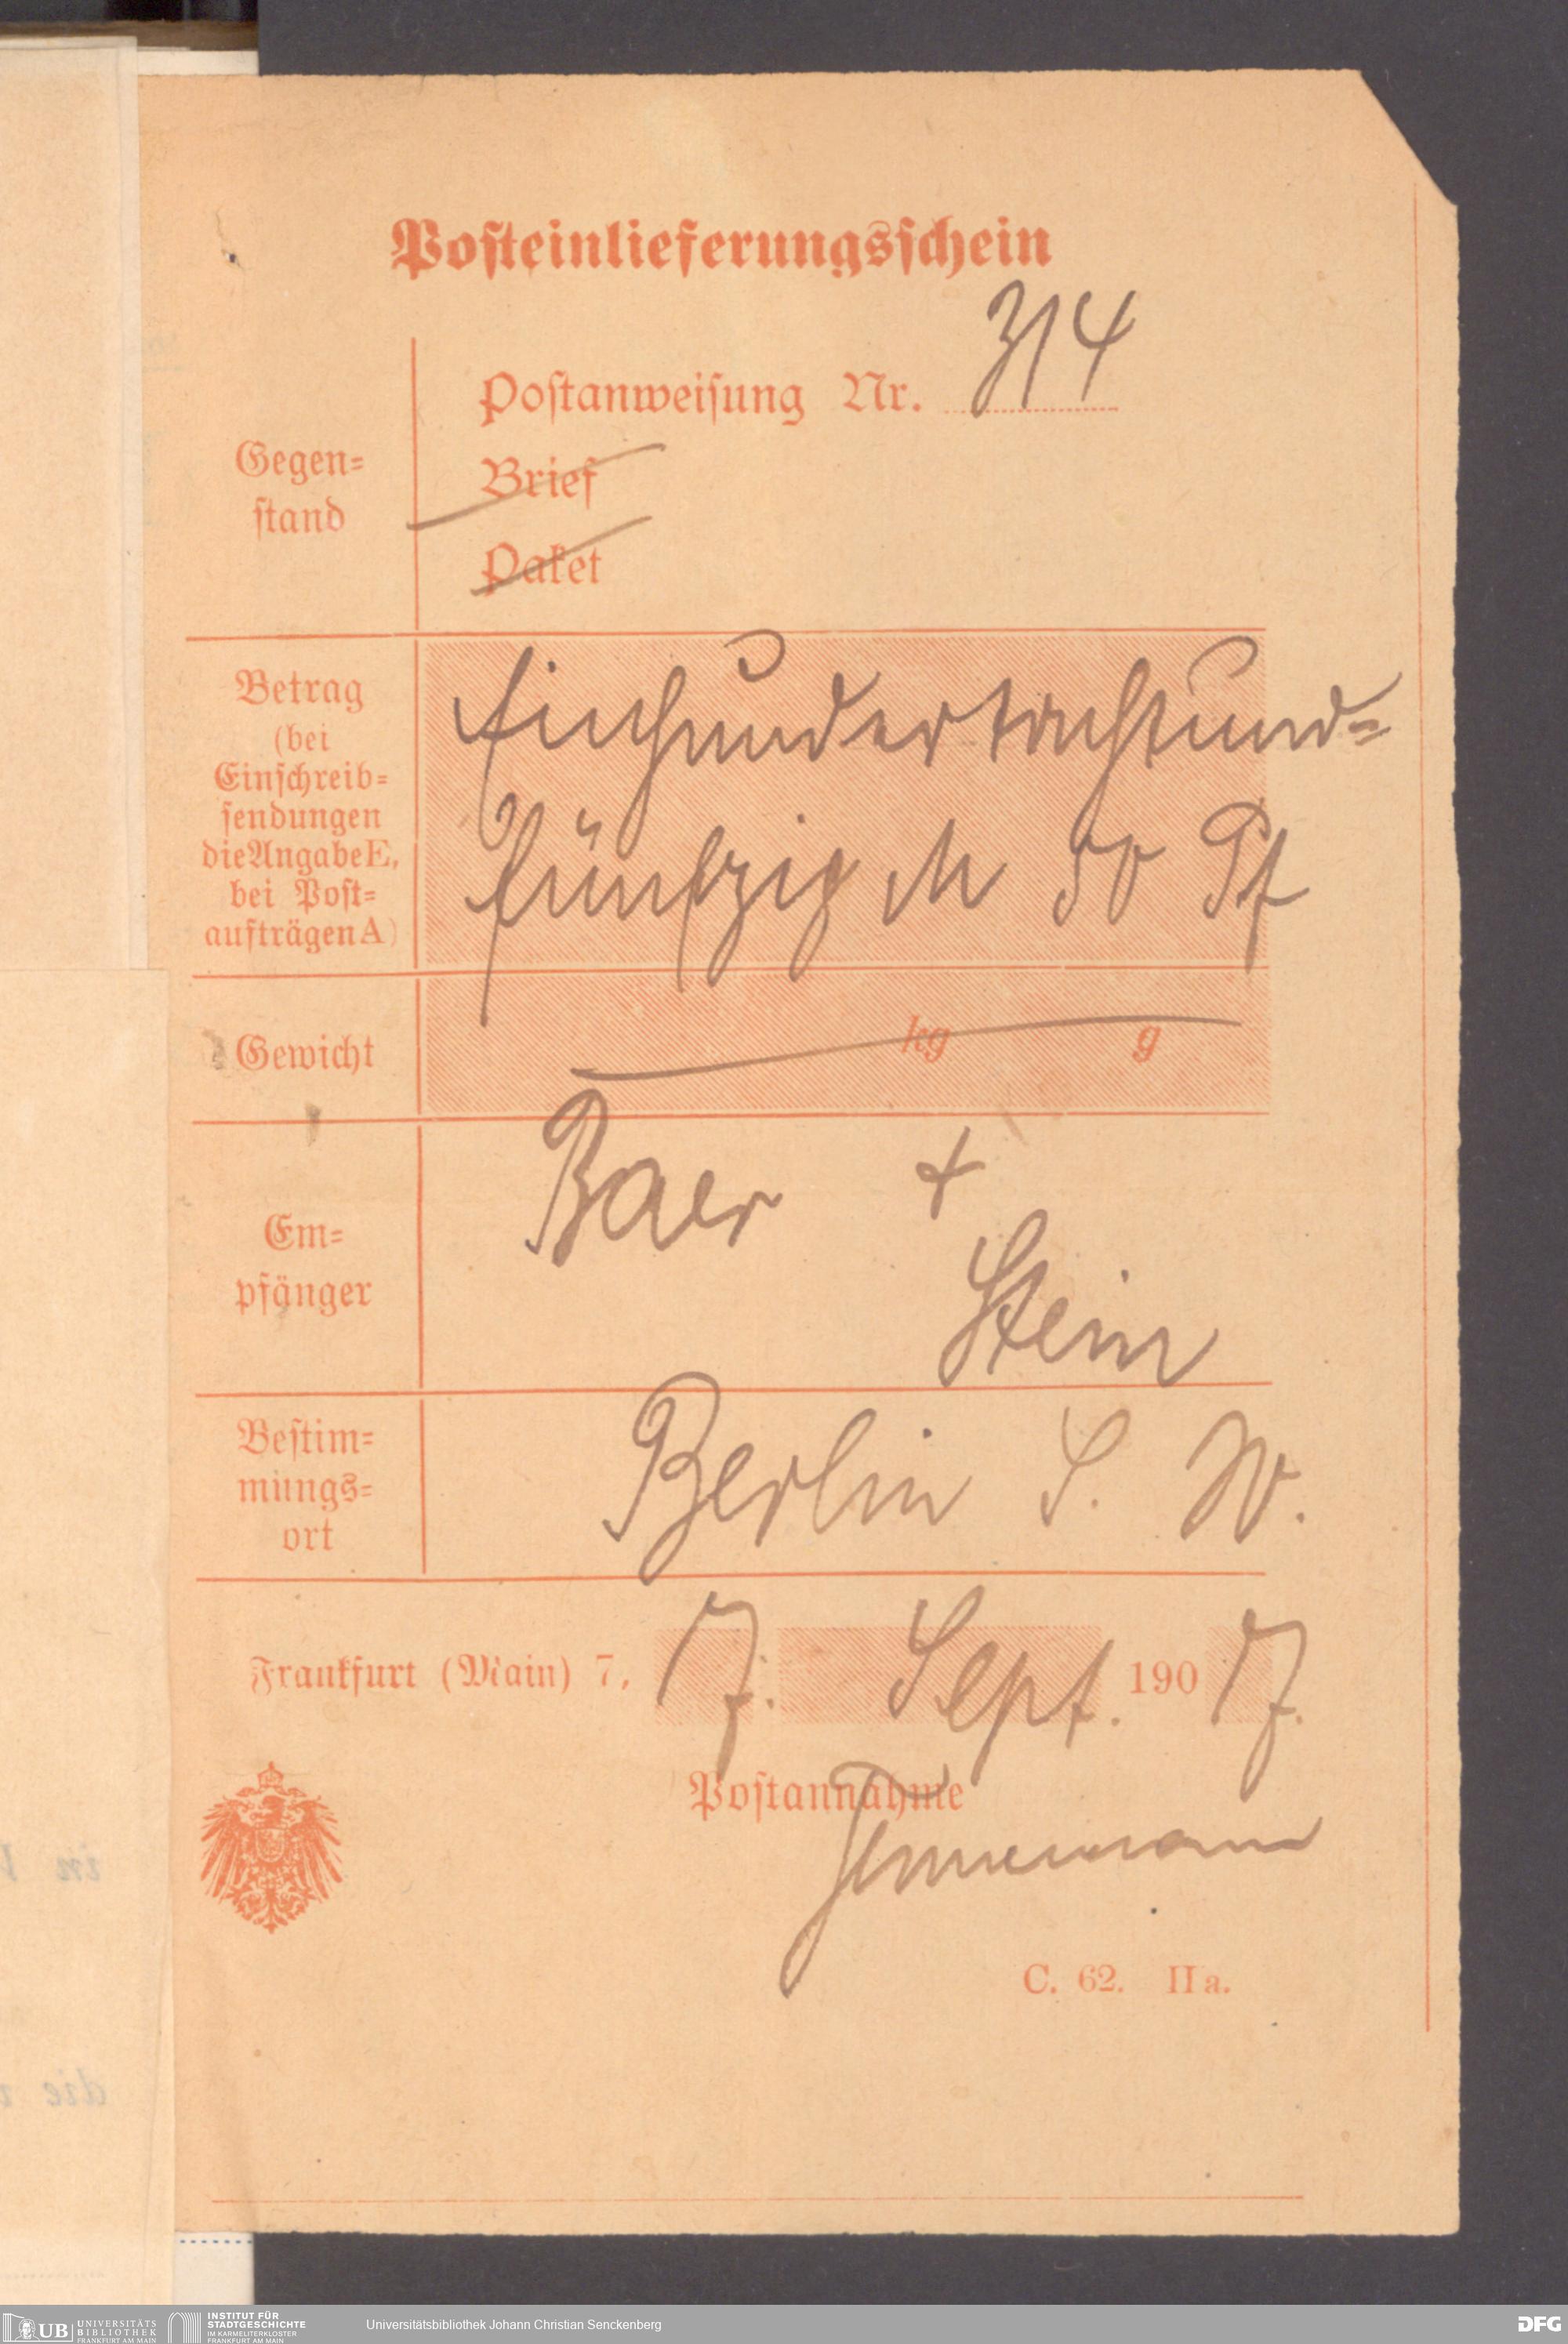 Posteinlieferungsschein
Gegen=
stand
Postanweisung Nr. 314
Brief
Paket
Betrag
(bei
Einschreib=
sendungen
die Angabe E,
bei Post=
aufträgen A)
Einhundertachtund=
fünfzig M 50 Pf
Gewicht
kg g
Em=
pfänger
Baer +
Stein
Bestim=
mungs=
ort
Berlin S. W.
Frankfurt (Main) 7, 7. Sept. 1907.
Postannahme
C. 62. IIa.
in
die
UB UNIVERSITÄTS
BIBLIOTHEK
FRANKFURT AM MAIN
INSTITUT FÜR
STADTGESCHICHTE
IM KARMELITERKLOSTER
FRANKFURT AM MAIN
Universitätsbibliothek Johann Christian Senckenberg
DFG